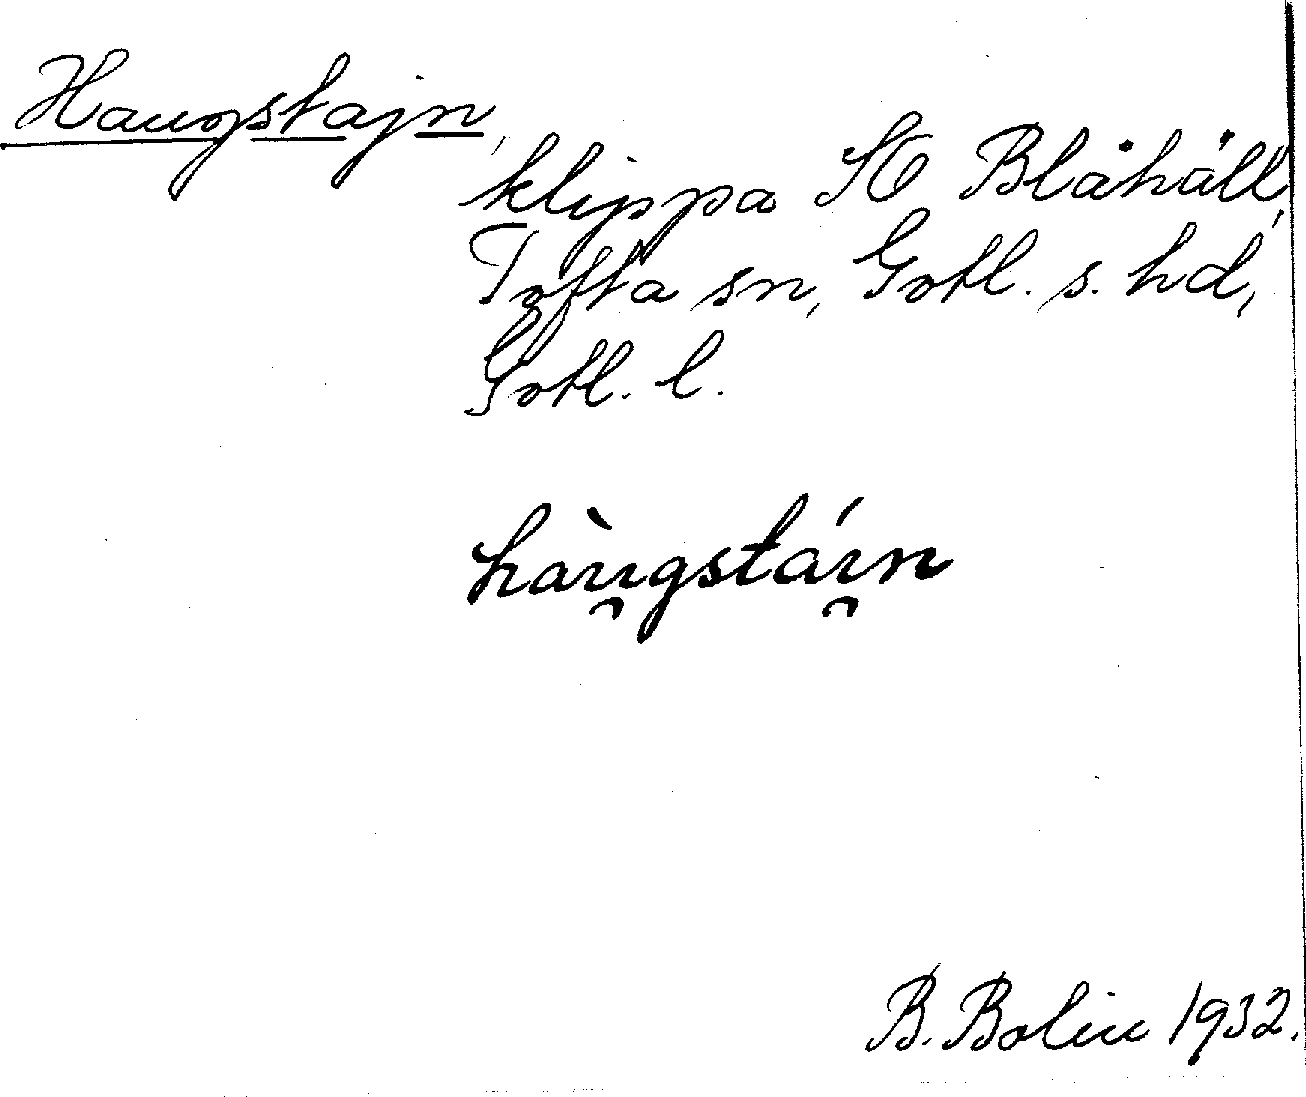 Haugstajn,
klippa St Blåhäll,
Tofta sn, Gotl. s. hd,
Gotl. l.
hàu̯gstái̯n
B. Bolin 1932.